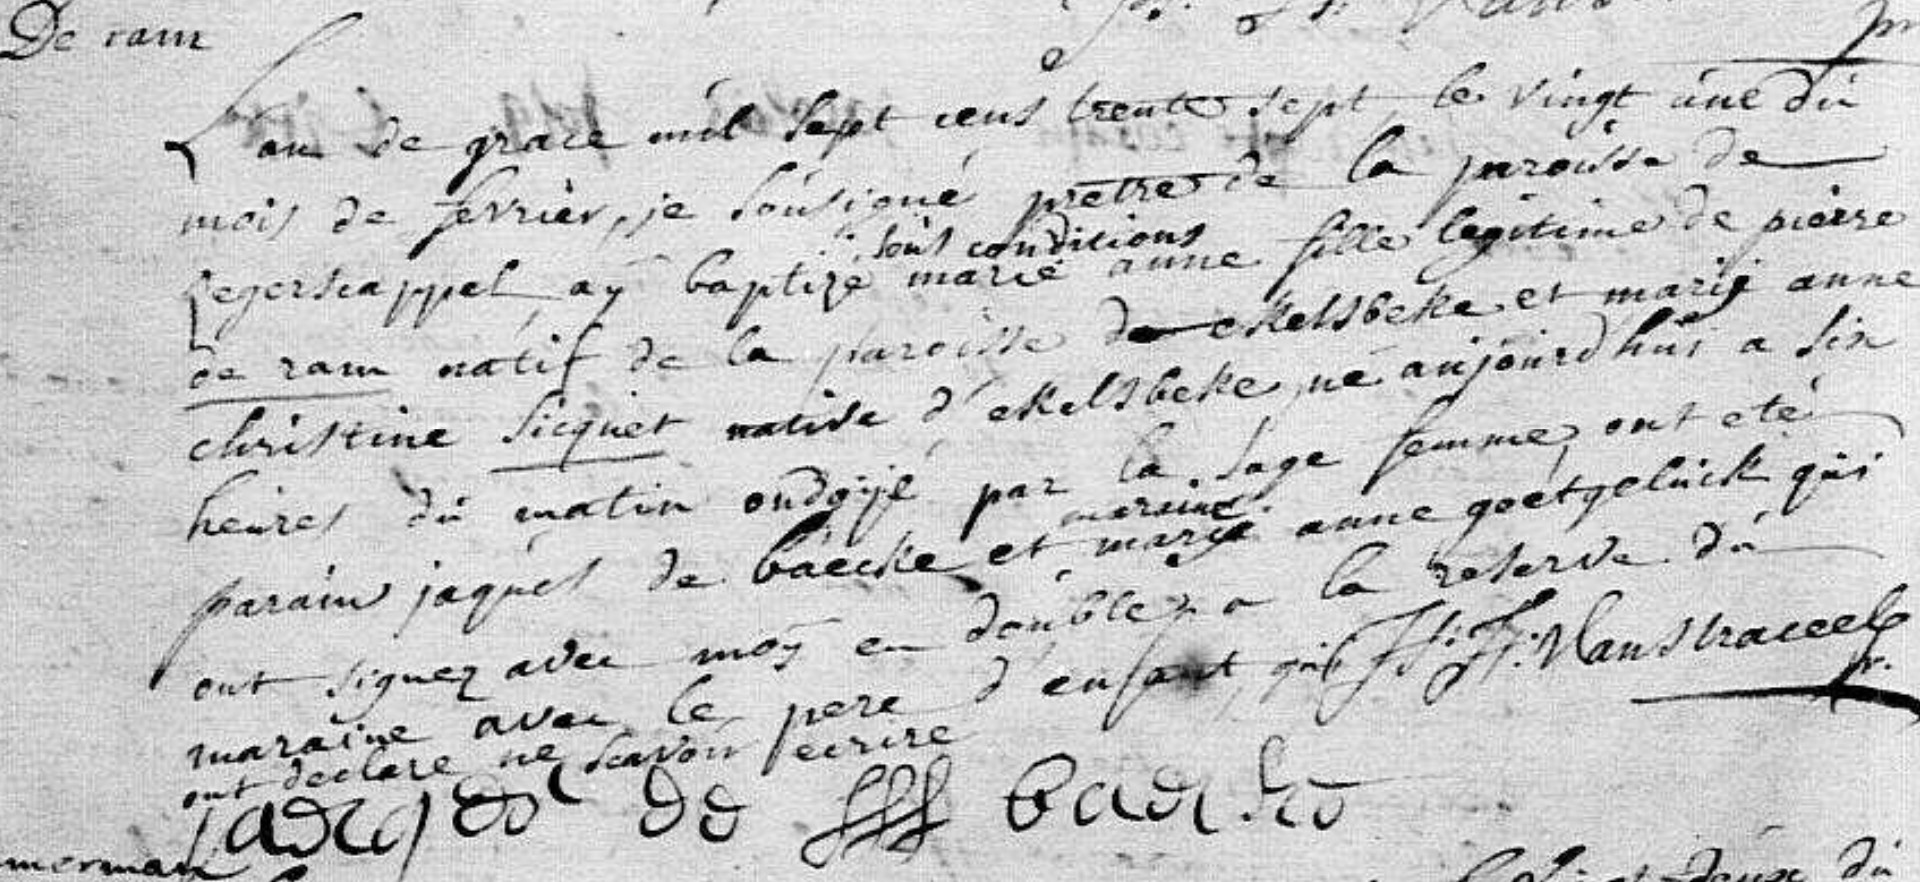 De ram
L'an de grace mil sept cens trente sept le vingt une du
mois de fevrier, je sousigné prêtre de la paroisse de
sous conditions
Zegerscappel ay baptizé marie anne fille legitime de pierre
de ram natif de la paroisse de ekelsbeke et marie anne
christine sicquet native d'ekelsbeke né aujourd'hui a six
heures du matin ondoijé par la sage femme, ont eté
maraine
parain jaques de baecke et marie anne goetgeluck qui
ont signez avec moÿ en double a la reserve du
maraine avec le pere d'enfant qui J. F. Vanstraceele
pr.
ont declare ne scavoir ecrire
jacques de baecke
merman
deux du